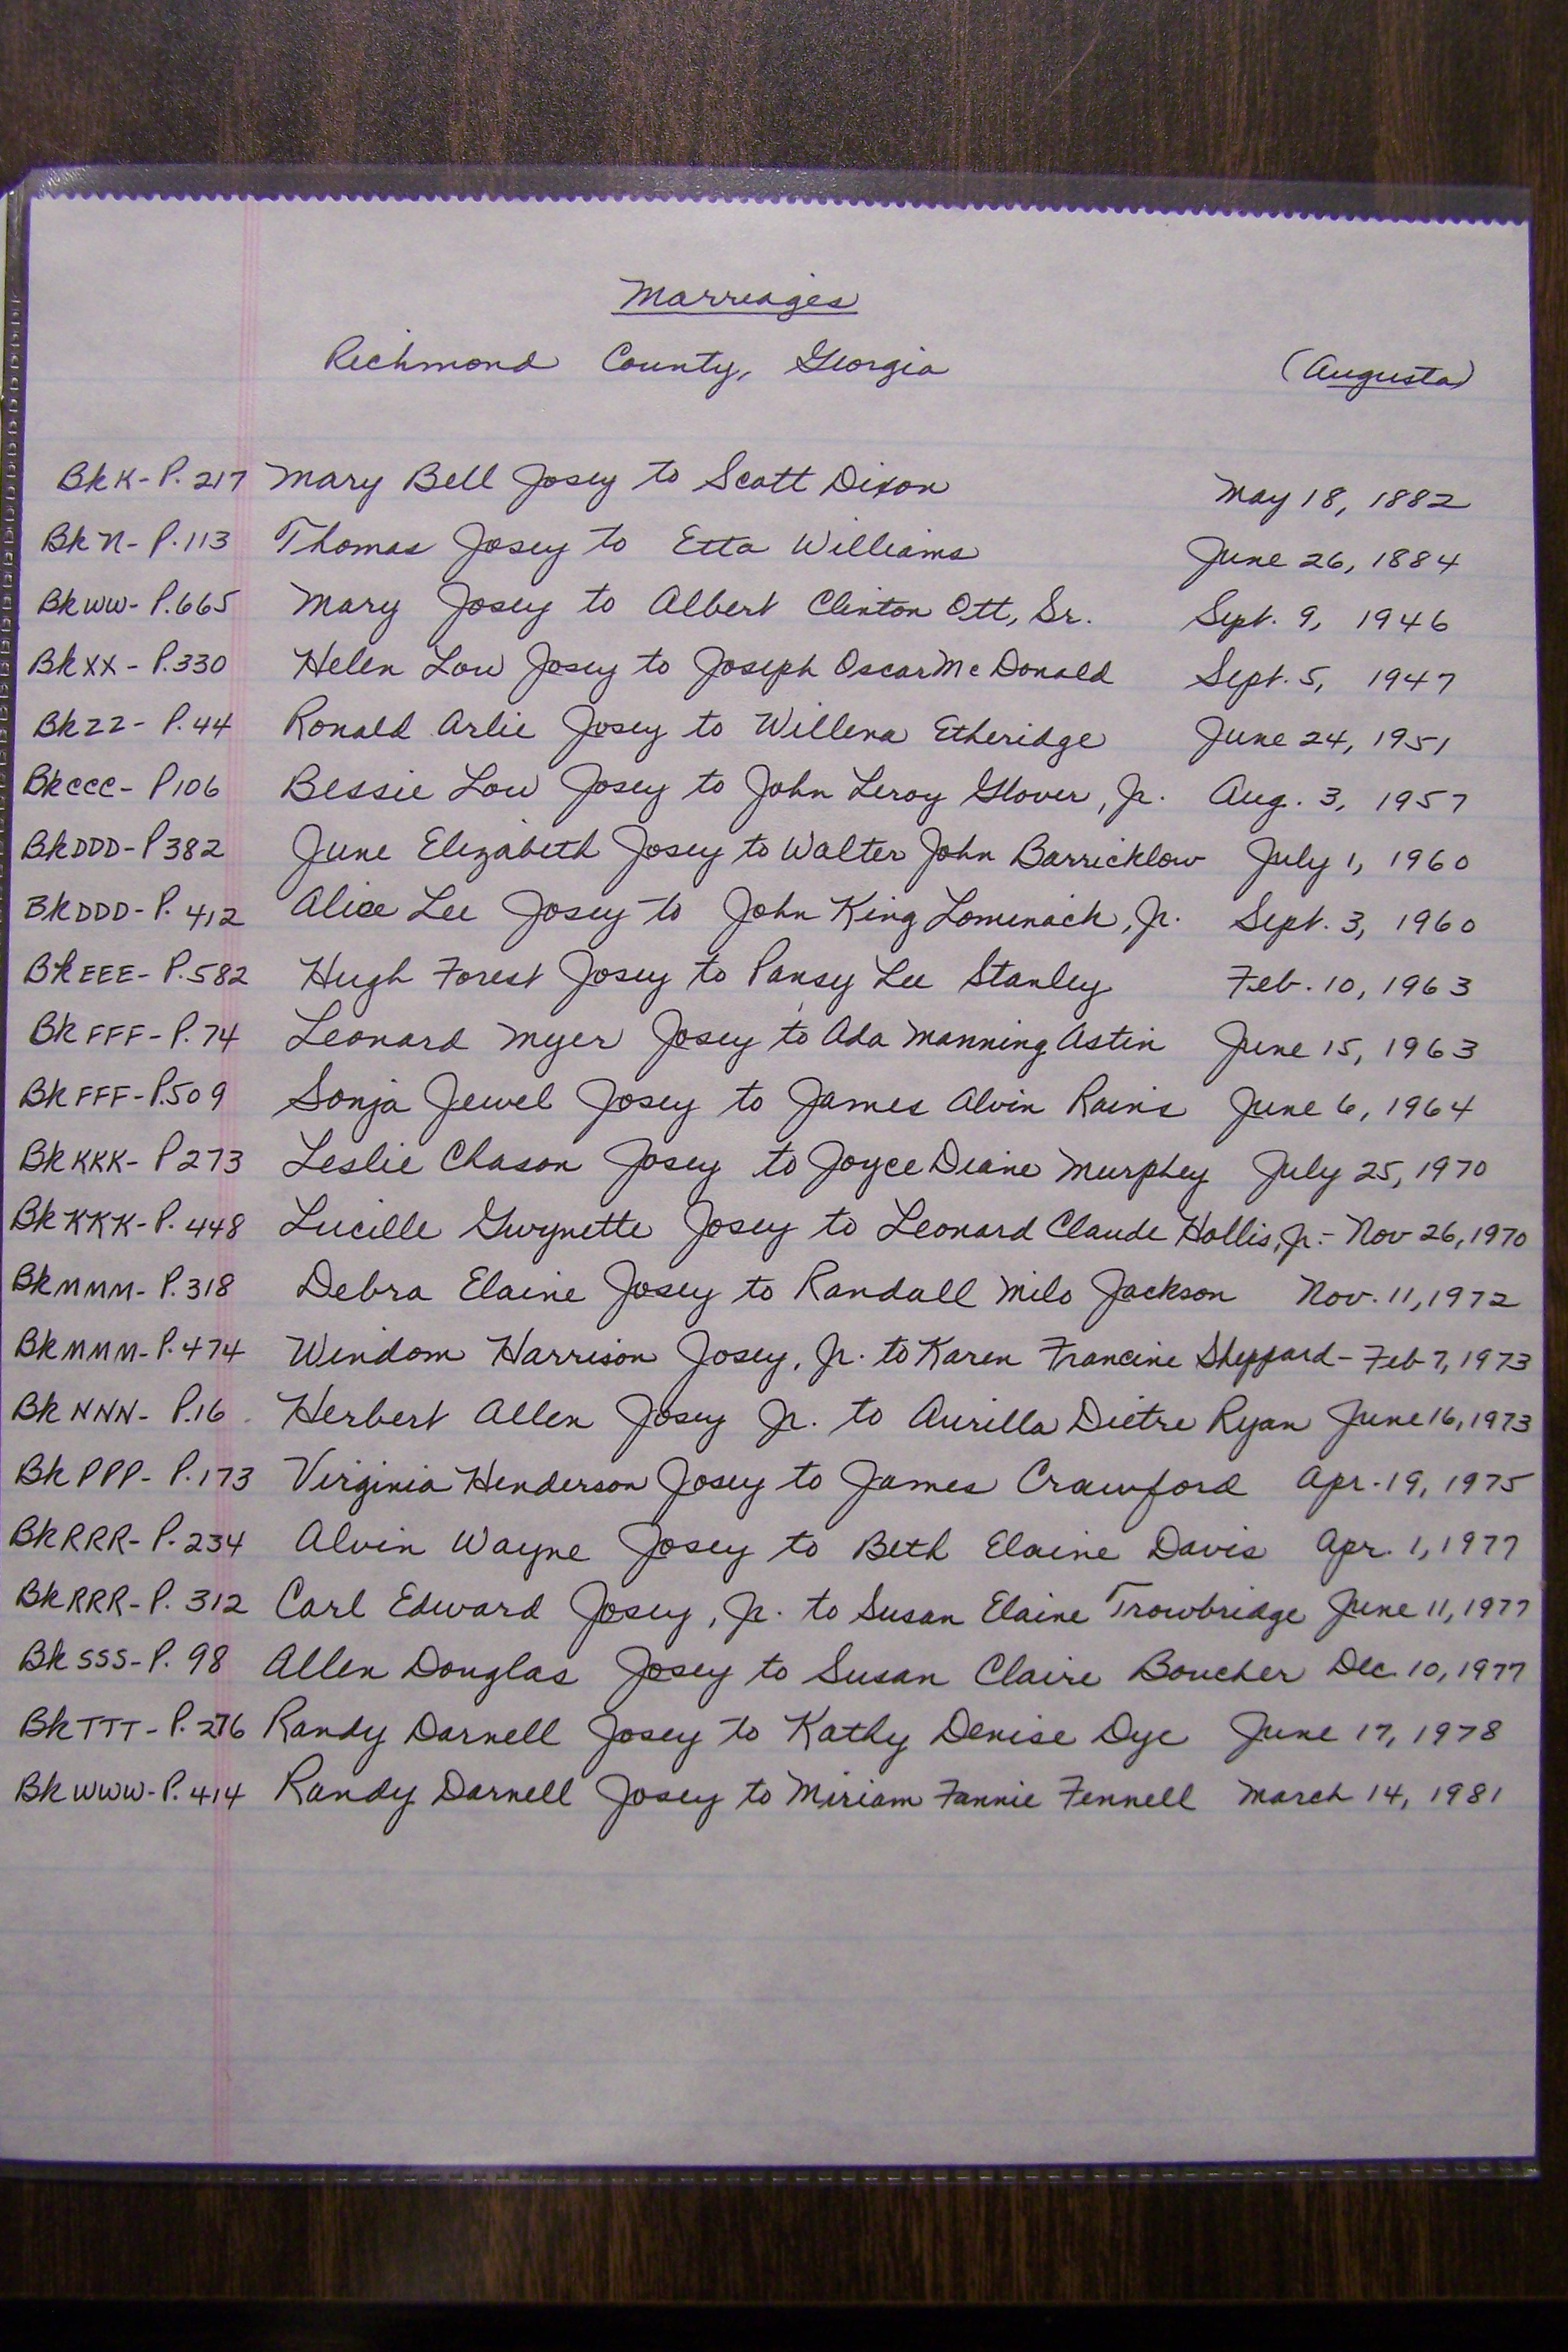 Marriages
Richmond County, Georgia (Augusta)
Bk K - P. 217 Mary Bell Josey to Scott Dixon May 18, 1882
Bk N - P. 113 Thomas Josey to Etta Williams June 26, 1884
Bk WW - P. 665 Mary Josey to Albert Clinton Ott, Sr. Sept. 9, 1946
Bk XX - P. 330 Helen Lou Josey to Joseph Oscar McDonald Sept. 5, 1947
Bk ZZ - P. 44 Ronald Arlie Josey to Willena Etheridge June 24, 1951
Bk CCC - P 106 Bessie Lou Josey to John Leroy Glover, Jr. Aug. 3, 1957
Bk DDD - P 382 June Elizabeth Josey to Walter John Barricklow July 1, 1960
Bk DDD - P. 412 Alice Lee Josey to John King Lominack, Jr. Sept. 3, 1960
Bk EEE - P. 582 Hugh Forest Josey to Pansy Lee Stanley Feb. 10, 1963
Bk FFF - P. 74 Leonard Myer Josey to Ada Manning Astin June 15, 1963
Bk FFF - P. 509 Sonja Jewel Josey to James Alvin Rains June 6, 1964
Bk KKK - P 273 Leslie Chason Josey to Joyce Diane Murphey July 25, 1970
Bk KKK - P. 448 Lucille Gwynette Josey to Leonard Claude Hollis, Jr. - Nov 26, 1970
Bk MMM - P. 318 Debra Elaine Josey to Randall Milo Jackson Nov. 11, 1972
Bk MMM - P. 474 Windom Harrison Josey, Jr. to Karen Francine Sheppard - Feb 7, 1973
Bk NNN - P. 16 Herbert Allen Josey Jr. to Aurilla Dietre Ryan June 16, 1973
Bk PPP - P. 173 Virginia Henderson Josey to James Crawford Apr. 19, 1975
Bk RRR - P. 234 Alvin Wayne Josey to Beth Elaine Davis Apr. 1, 1977
Bk RRR - P. 312 Carl Edward Josey, Jr. to Susan Elaine Trowbridge June 11, 1977
Bk SSS - P. 98 Allen Douglas Josey to Susan Claire Boucher Dec. 10, 1977
Bk TTT - P. 276 Randy Darnell Josey to Kathy Denise Dye June 17, 1978
Bk WWW - P. 414 Randy Darnell Josey to Miriam Fannie Fennell March 14, 1981